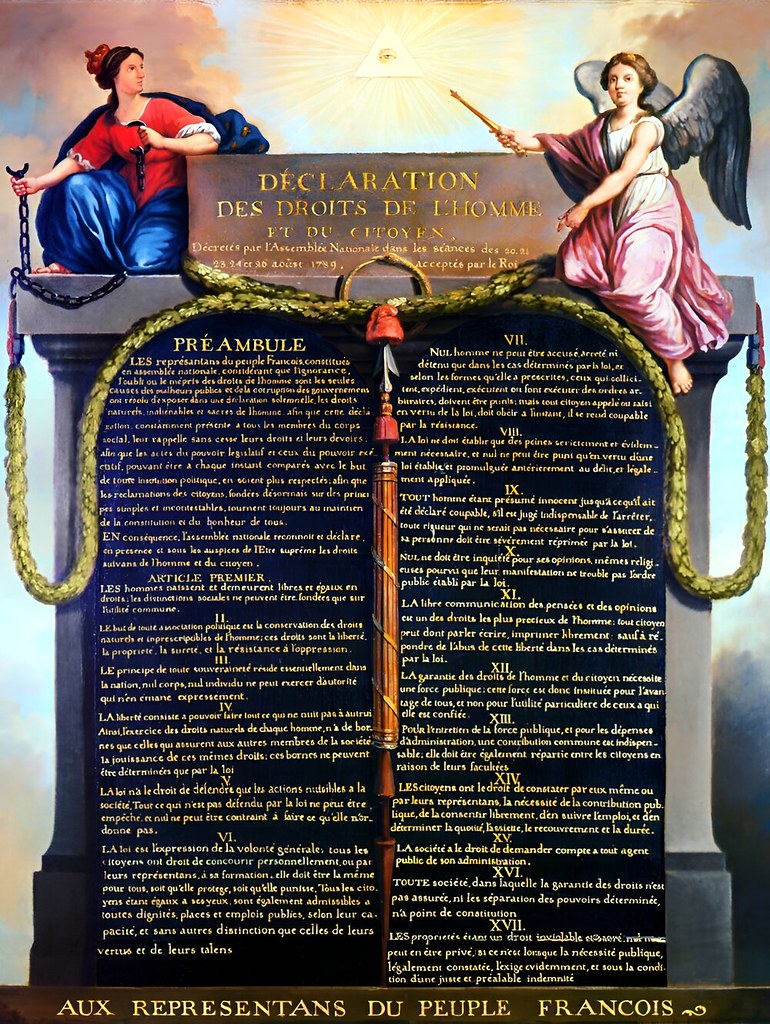 DÉCLARATION
DES DROITS DE L'HOMME
ET DU CITOYEN,
Décretés par l'Assemblée Nationale dans les séances des 20, 21
23, 24 et 26 août 1789, acceptés par le Roi
PRÉAMBULE
LES représantans du peuple Francois, constitués
en assemblée nationale, considérant que l'ignorance,
l'oubli ou le mépris des droits de l'homme sont les seules
causes des malheurs publics et de la corruption des gouvernemens
ont résolu d'exposer dans une déclaration solemnelle, les droits
naturels, inaliénables et sacrés de l'homme; afin que cette décla
ration, constamment présente a tous les membres du corps
social, leur rappelle sans cesse leurs droits et leurs devoirs;
afin que les actes du pouvoir legislatif et ceux du pouvoir exé
cutif, pouvant être a chaque instant comparés avec le but
de toute institution politique, en soient plus respectés; afin que
les reclamations des citoyens, fondées désormais sur des princi
pes simples et incontestables, tournent toujours au maintien
de la constitution et du bonheur de tous.
EN conséquence, l'assemblée nationale reconnoit et déclare,
en presence et sous les auspices de l'Etre suprême les droits
suivans de l'homme et du citoyen.
ARTICLE PREMIER.
LES hommes naissent et demeurent libres et égaux en
droits; les distinctions sociales ne peuvent être fondées que sur
l'utilité commune.
II.
LE but de toute association politique est la conservation des droits
naturels et inprescriptibles de l'homme; ces droits sont la liberté,
la propriété, la sureté, et la résistance à l'oppression.
III.
LE principe de toute souveraineté réside essentiellement dans
la nation, nul corps, nul individu ne peut exercer d'autorité
qui n'en émane expressement.
IV.
LA liberté consiste a pouvoir faire tout ce qui ne nuit pas à autrui
Ainsi, l'exercice des droits naturels de chaque homme, n'a de bor
nes que celles qui assurent aux autres membres de la société
la jouissance de ces mêmes droits; ces bornes ne peuvent
être déterminées que par la loi
V.
LA loi n'a le droit de défendre que les actions nuisibles a la
société. Tout ce qui n'est pas défendu par la loi ne peut être
empêché, et nul ne peut être contraint à faire ce qu'elle n'or-
donne pas.
VI.
LA loi est l'expression de la volonté générale; tous les
citoyens ont droit de concourir personnellement, ou par
leurs représentans, à sa formation, elle doit être la même
pour tous, soit qu'elle protege, soit qu'elle punisse, Tous les cito
yens étant égaux a ses yeux, sont également admissibles a
toutes dignités, places et emplois publics, selon leur ca-
pacité, et sans autres distinction que celles de leurs
vertus et de leurs talens
VII.
NUL homme ne peut être accusé, arreté ni
détenu que dans les cas déterminés par la loi, et
selon les formes qu'elle a prescrites, ceux qui sollici-
tent, expédient, exécutent ou font exécuter des ordres ar-
bitraires, doivent être punis; mais tout citoyen appelé ou saisi
en vertu de la loi, doit obéir a l'instant, il se rend coupable
par la résistance.
VIII.
LA loi ne doit établir que des peines strictement et évidem-
ment nécessaire, et nul ne peut être puni qu'en vertu d'une
loi établie et promulguée antérierement au délit, et légale-
ment appliquée.
IX.
TOUT homme étant présumé innocent jusqu'a ce qu'il ait
été déclaré coupable, s'il est jugé indispensable de l'arrêter,
toute rigueur qui ne serait pas nécessaire pour s'assurer de
sa personne doit être sévèrement réprimée par la loi.
X.
NUL ne doit être inquiété pour ses opinions, mêmes religi-
euses pourvu que leur manifestation ne trouble pas l'ordre
public établi par la loi.
XI.
LA libre communication des pensées et des opinions
est un des droits les plus precieux de l'homme; tout citoyen
peut dont parler écrire, imprimer librement; sauf à ré-
pondre de l'abus de cette liberté dans les cas déterminés
par la loi.
XII.
LA garantie des droits de l'homme et du citoyen nécessite
une force publique; cette force est donc instituée pour l'avan-
tage de tous, et non pour l'utilité particuliere de ceux a qui
elle est confiée.
XIII.
POUR l'entretien de la force publique, et pour les dépenses
d'administration, une contribution commune est indispen-
sable; elle doit être également répartie entre les citoyens en
raison de leurs facultées
XIV.
LES citoyens ont le droit de constater par eux même ou
par leurs représentans, la nécessité de la contribution pub-
lique, de la consentir librement, d'en suivre l'emploi, et d'en
déterminer la quotité, l'assiette, le recouvrement et la durée.
XV.
LA société a le droit de demander compte a tout agent
public de son administration.
XVI.
TOUTE société, dans laquelle la garantie des droits n'est
pas assurée, ni les séparation des pouvoirs déterminée,
n'a point de constitution
XVII.
LES proprietés étant un droit inviolable et sacré, nul ne
peut en être privé, si ce n'est lorsque la nécessité publique,
légalement constatée, l'exige evidemment, et sous la condi-
tion d'une juste et préalable indemnité
AUX REPRESENTANS DU PEUPLE FRANCOIS